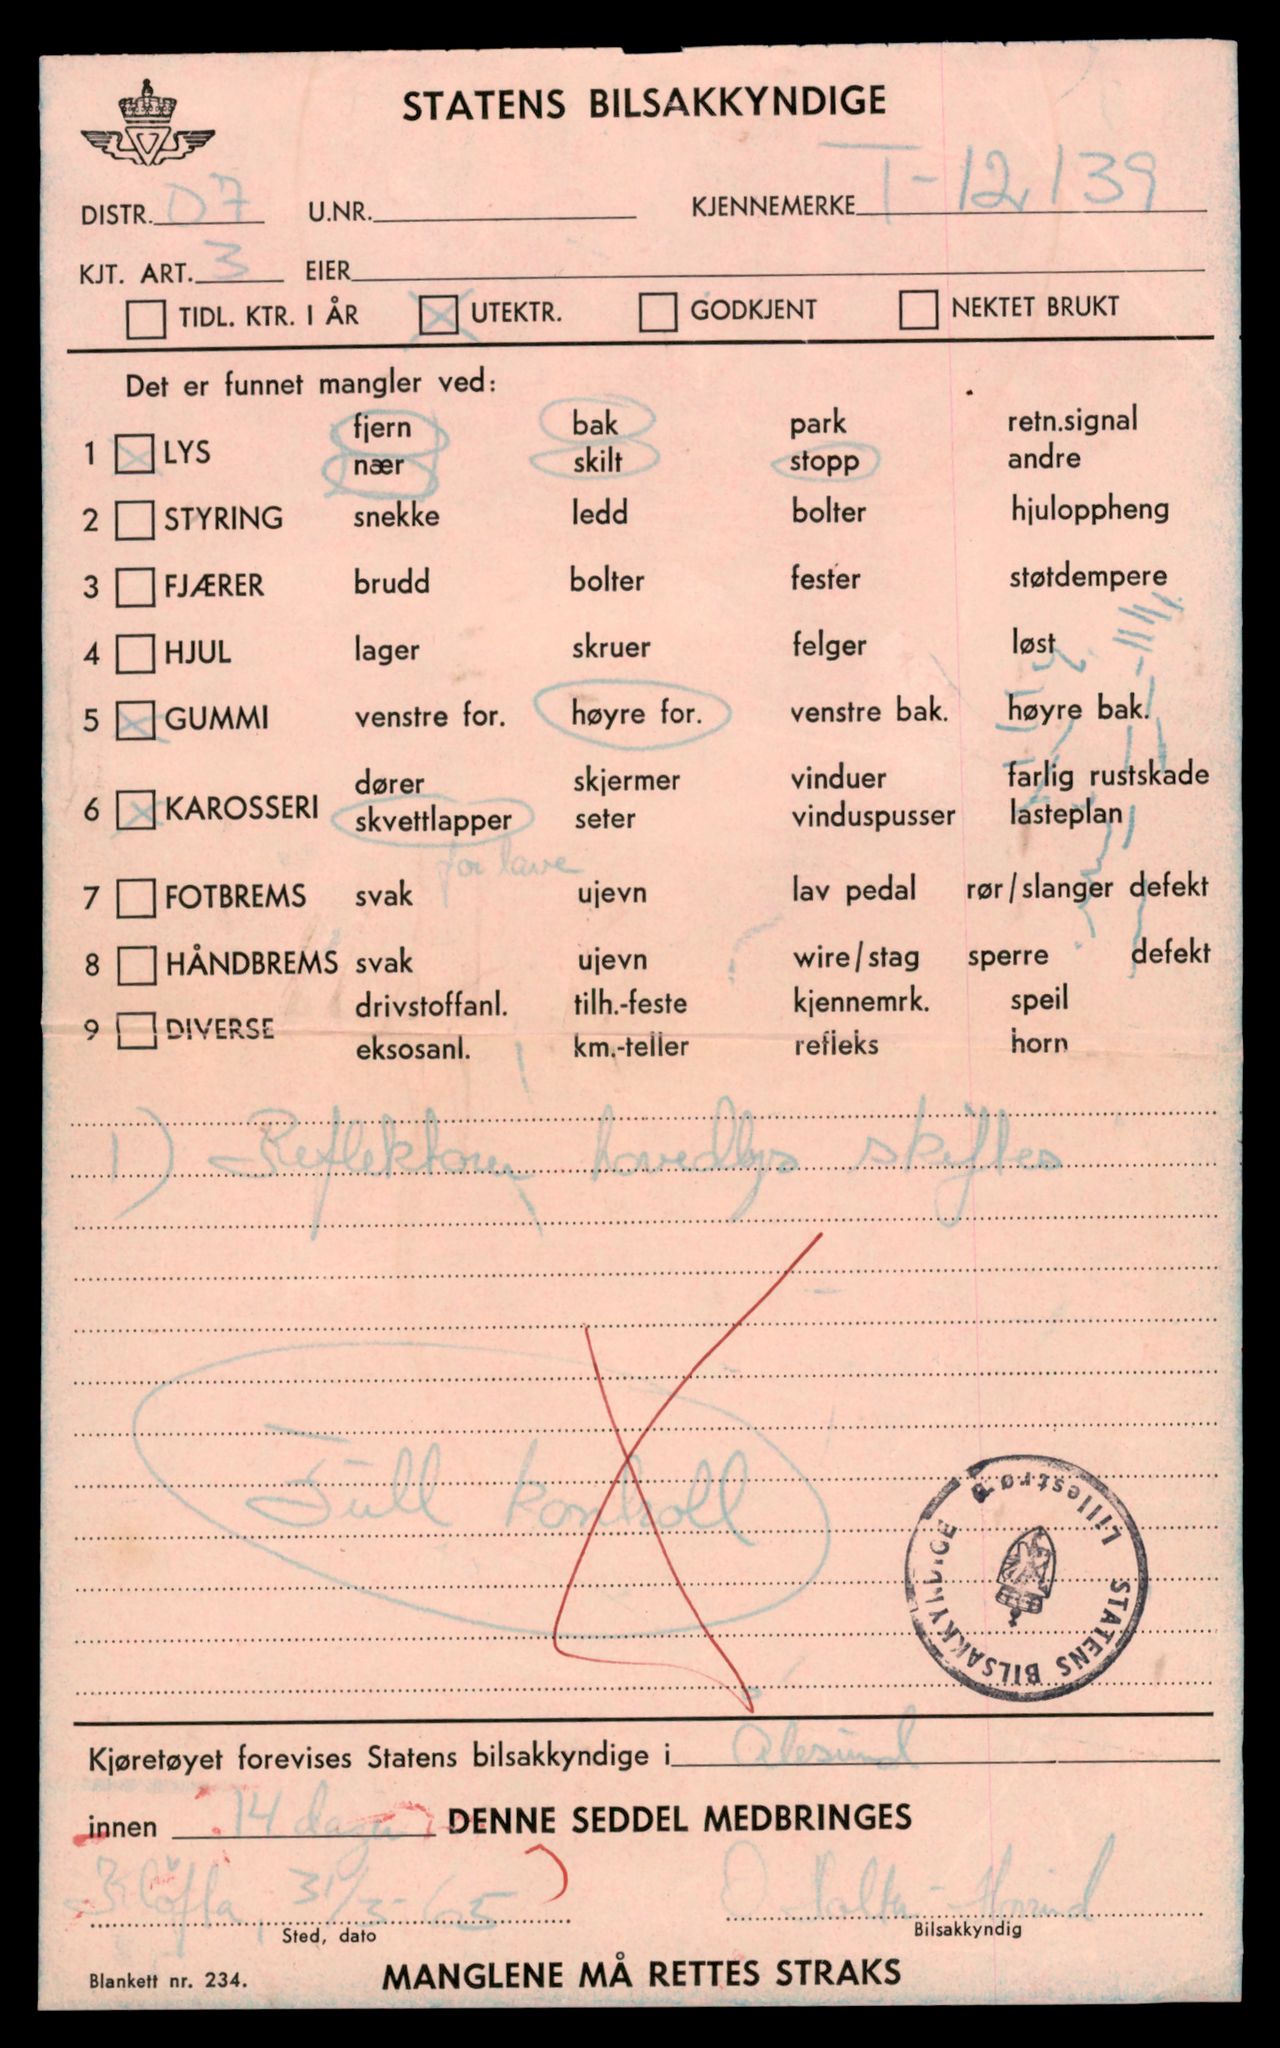 STATENS BILSAKKYNDIGE
DISTR. 07 U.NR. KJENNEMERKE T-12139
KJT. ART. 3 EIER
TIDL. KTR. I ÅR UTEKTR. GODKJENT NEKTET BRUKT
Det er funnet mangler ved:
fjern bak park retn.signal
1 LYS
nær skilt stopp andre
2 STYRING snekke ledd bolter hjuloppheng
3 FJÆRER brudd bolter fester støtdempere
4 HJUL lager skruer felger løst
5 GUMMI venstre for. høyre for. venstre bak. høyre bak.
dører skjermer vinduer farlig rustskade
6 KAROSSERI
skvettlapper seter vinduspusser lasteplan
for lave
7 FOTBREMS svak ujevn lav pedal rør/slanger defekt
8 HÅNDBREMS svak ujevn wire/stag sperre defekt
drivstoffanl. tilh.-feste kjennemrk. speil
9 DIVERSE
eksosanl. km.-teller refleks horn
1) Reflektorer hovedlys skiftes
Full kontroll
STATENS BILSAKKYNDIGE Lillestrøm
Kjøretøyet forevises Statens bilsakkyndige i Ålesund
innen 14 dager DENNE SEDDEL MEDBRINGES
Kløfta, 31/3-65
Sted, dato Bilsakkyndig
Blankett nr. 234. MANGLENE MÅ RETTES STRAKS